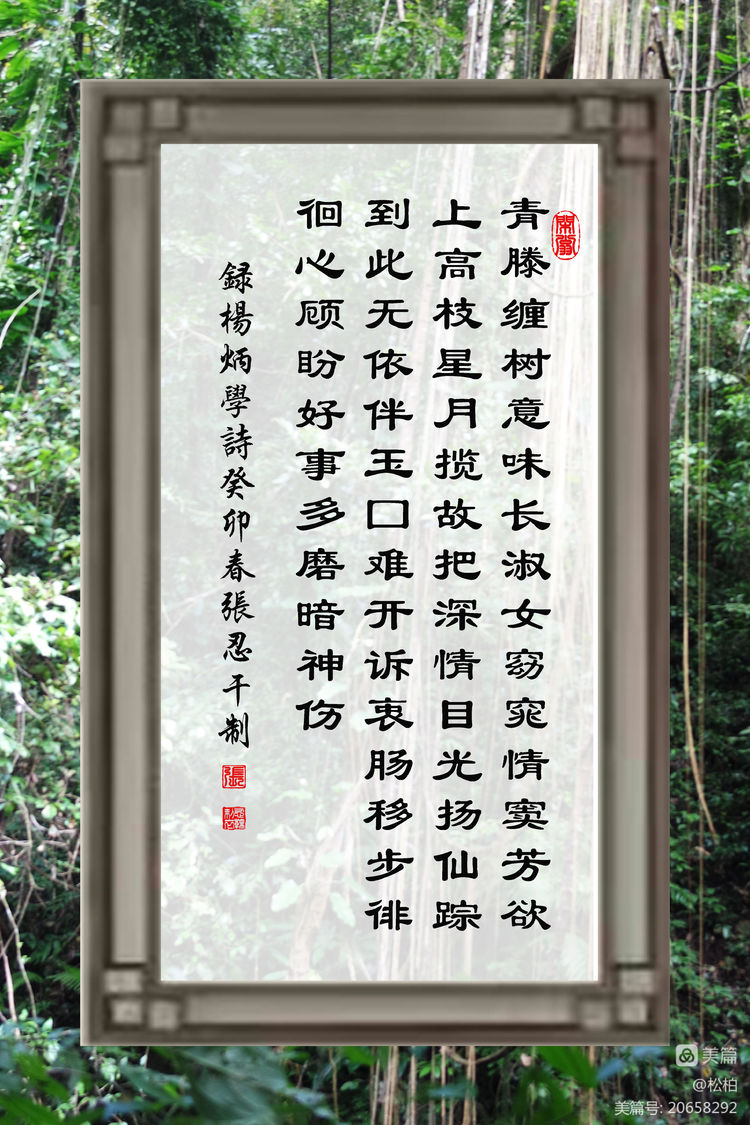 青滕缠树意味长淑女窈窕情窦芳欲
上高枝星月揽故把深情目光扬仙踪
到此无依伴玉口难开诉衷肠移步徘
徊心顾盼好事多磨暗神伤
録楊炳學詩癸卯春張忍干制
張
美篇
@松柏
美篇号: 20658292